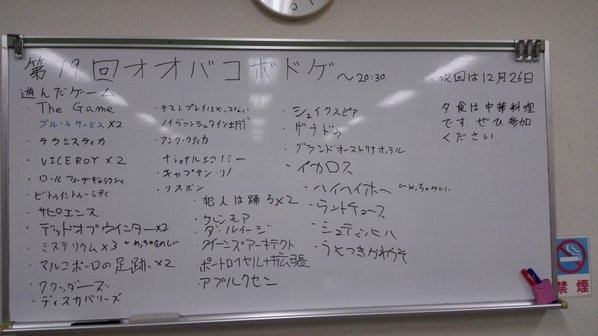 第19回オオバコボドゲ 〜20:30.
次回は12月26日
夕食は中華料理
です。ぜひ参加
ください。
遊んだゲーム
・The Game
・ブルームサービス×2
・テラミスティカ
・VICEROY×2
・ロールフォーザギャラクシィ
・ビトウィントゥーシティ
・サピエンス
・デッドオブウインター×2
・ミステリウム×3
・マルコポーロの足跡×2
・ワンダーズ
・ディスカバリーズ
・テストプレイはやってない
・ノイヴァンシュタイン城
・アンタークティカ
・ナショナルエコノミー
・キャプテン・リノ
・リスボン
・犯人は踊る×2
・グレンモア
・ダ・ルイージ
・クイーンズアーキテクト
・ポートロイヤル+拡張
・アブルクセン
・シェイクスピア
・グランドオーストリアホテル
・イカロス
・ハイハイホー
・ランドチュース
・うそつきかわうそ
禁煙